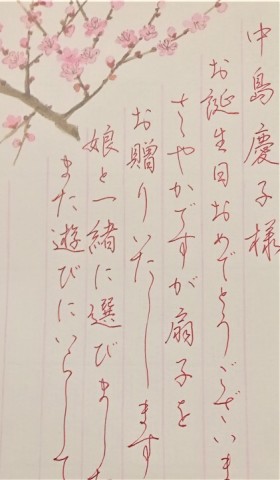 中島慶子様
お誕生日おめでとうございま
さゝやかですが扇子を
お贈りいたします
娘と一緒に選びました
また遊びにいらして